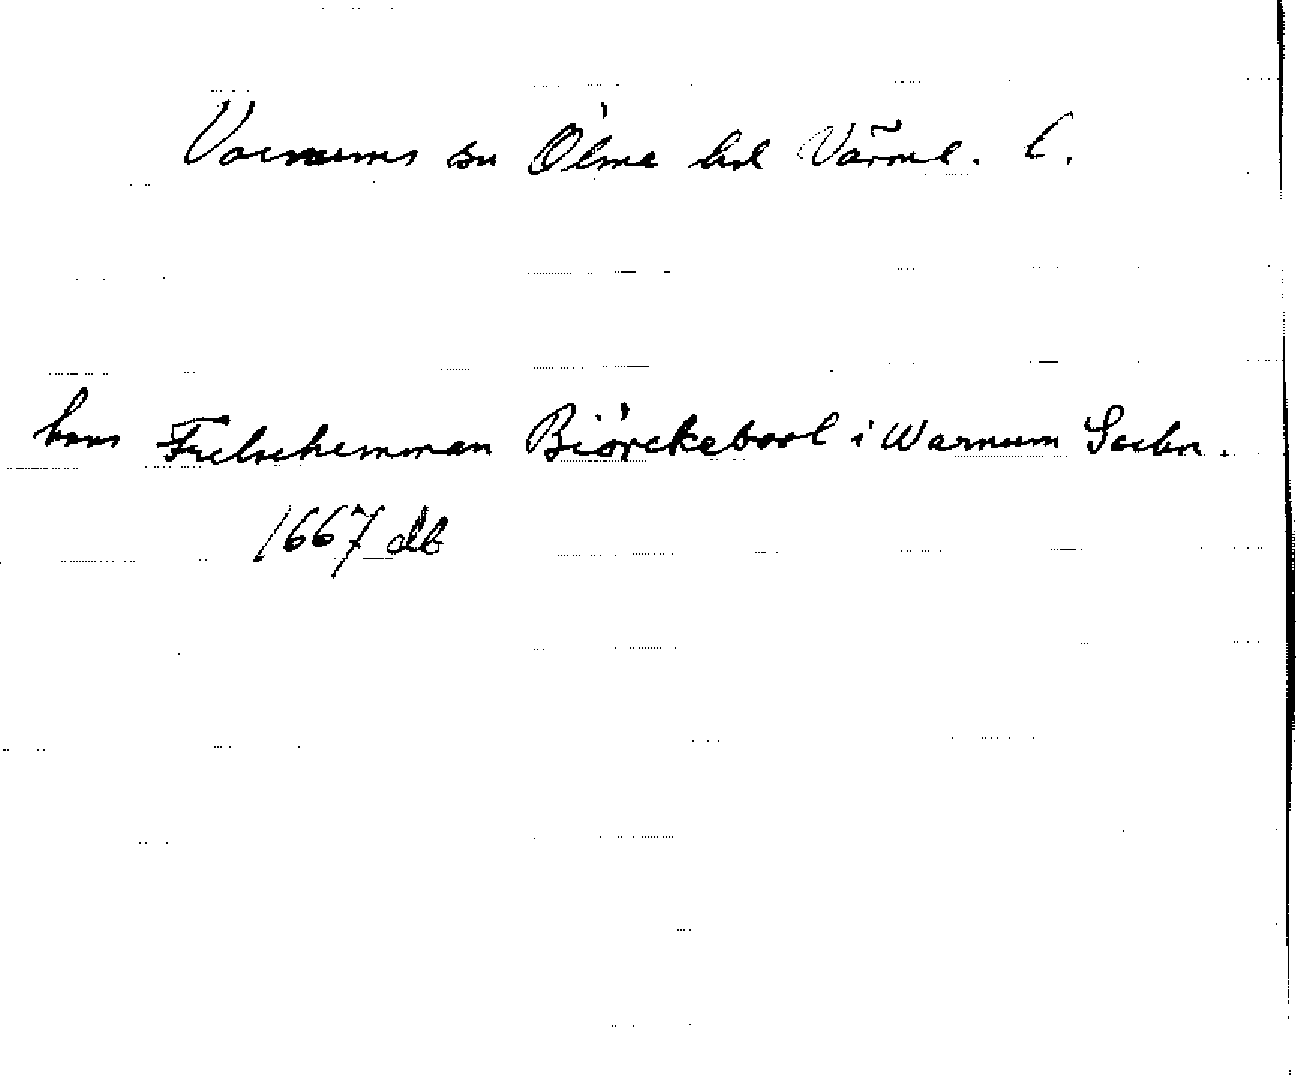 Varnums sn Ölme hd Värml. l.
hans Frelsehemman Biörckebool i Warnum Sochn.
1667 db